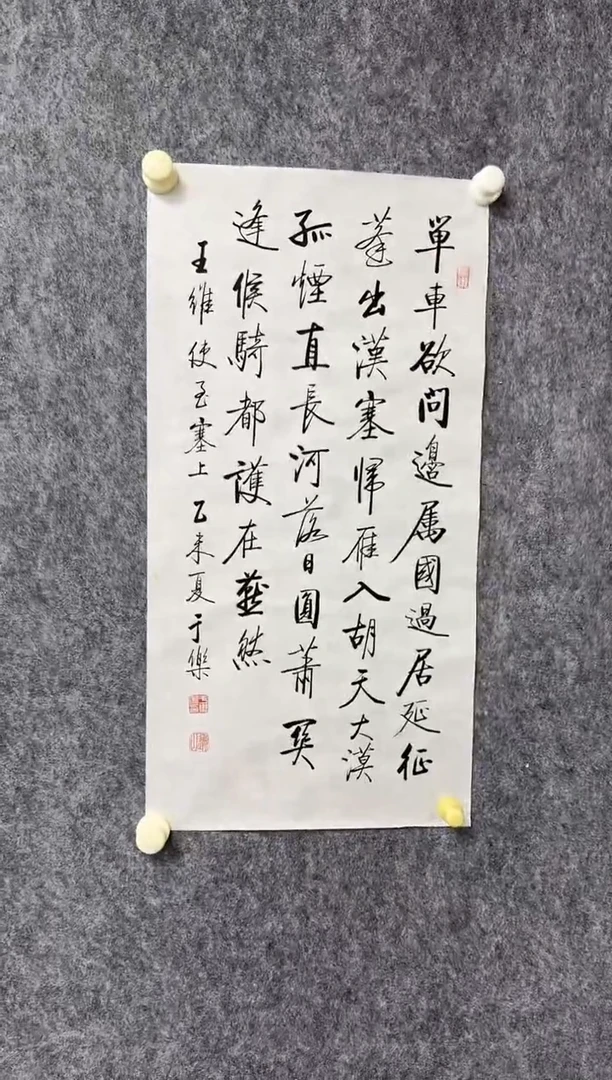 單車欲問邊属國過居延征
蓬出漢塞帰雁入胡天大漠
孤煙直長河落日圓蕭関
逢候騎都護在燕然
王維使至塞上乙未夏于樂